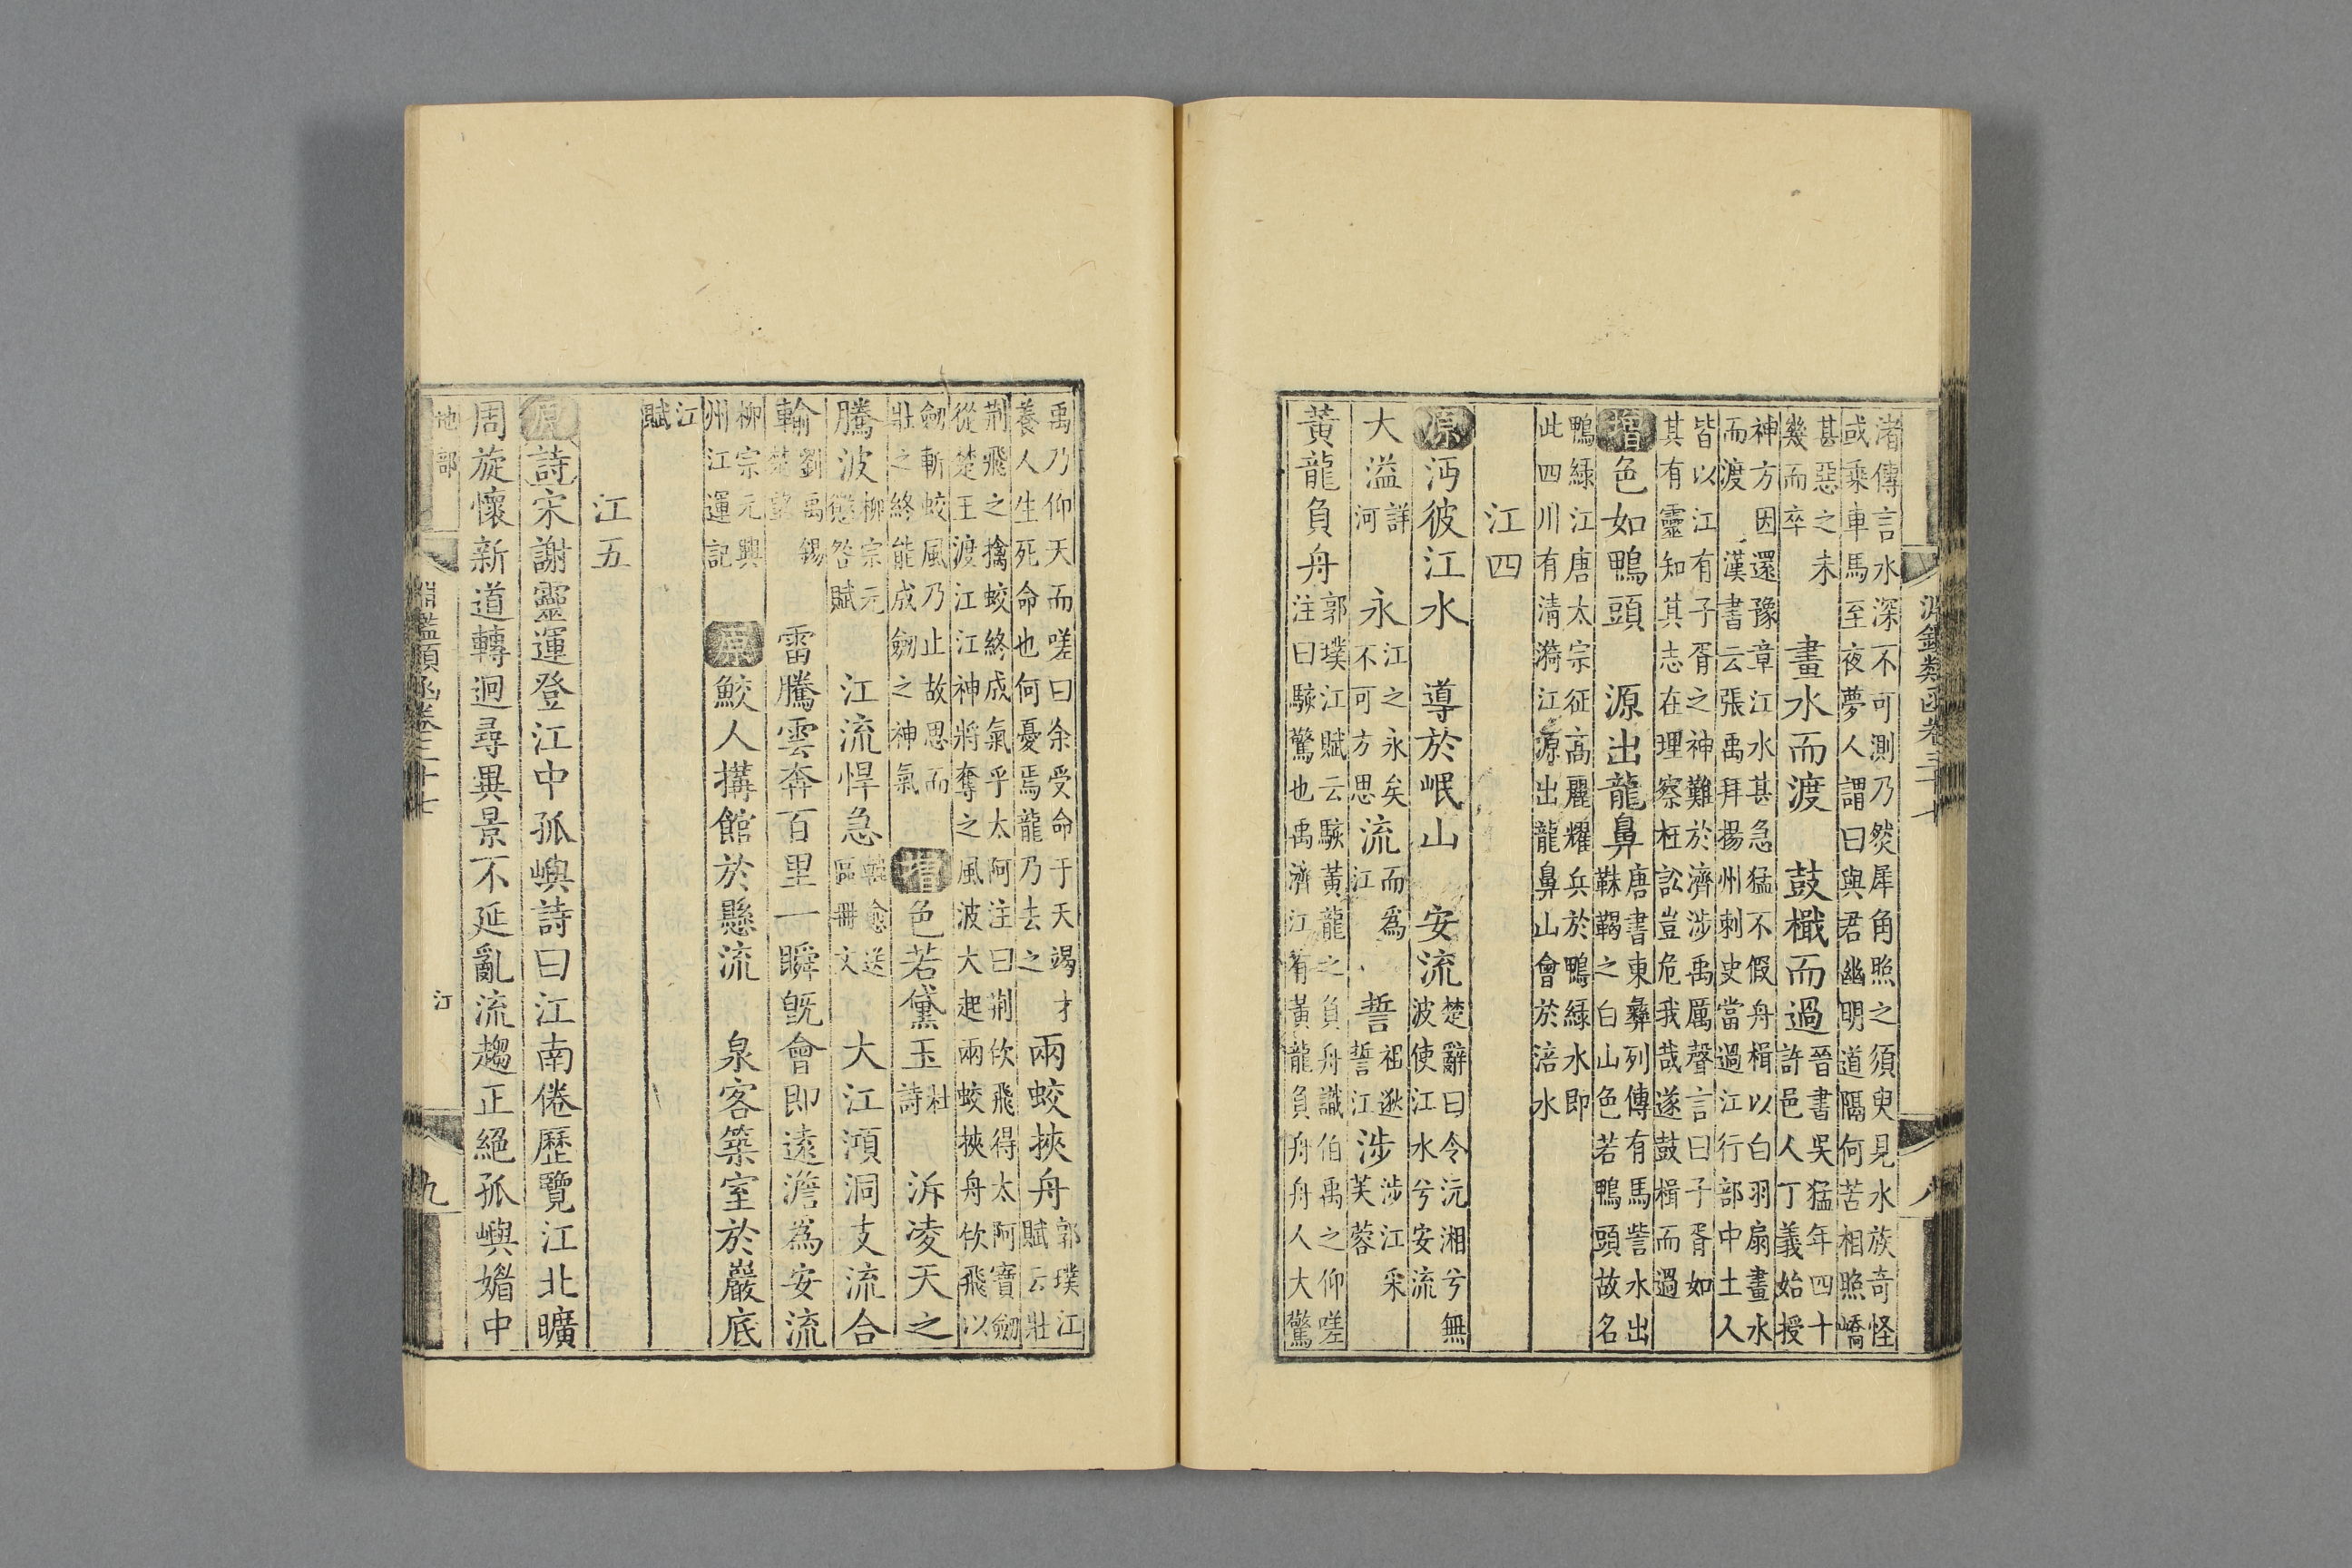 淵鑑類函卷三十七
八
渚傳言水深不可測乃焚犀角照之須臾見水族奇怪
或乘車馬至夜夢人謂曰與君幽明道隔何苦相照嶠
甚惡之未
幾而卒
畫水而渡 鼓檝而過
晉書吳猛年四十
許邑人丁義始授
神方因還豫章江水甚急猛不假舟楫以白羽扇畫水
而渡 漢書云張禹拜揚州刺史當過江行部中土人
皆以江有子胥之神難於濟涉禹厲聲言曰子胥如
其有靈知其志在理察枉訟豈危我哉遂鼓楫而過
增色如鴨頭 源出龍鼻
唐書東彝列傳有馬訾水出
靺鞨之白山色若鴨頭故名
鴨綠江唐太宗征高麗耀兵於鴨綠水即
此四川有清漪江源出龍鼻山會於涪水
江四
原沔彼江水 導於岷山 安流
楚辭曰令沅湘兮無
波使江水兮安流
大溢
詳
河
永
江之永矣
不可方思
流
而為
江
誓
祖逖
誓江
涉
涉江采
芙蓉
黃龍負舟
郭璞江賦云駭黃龍之負舟識伯禹之仰嗟
注曰駭驚也禹濟江有黃龍負舟舟人大驚
禹乃仰天而嗟曰余受命于天竭才
養人生死命也何憂焉龍乃去之
兩蛟挾舟
郭璞江
賦云壯
荆飛之擒蛟終成氣乎太阿注曰荆佽飛得太阿寶劒
從楚王渡江江神將奪之風波大起兩蛟挾舟佽飛以
劒斬蛟風乃止故思而
壯之終能成劒之神氣
增色若黛玉
杜
詩
泝凌天之
騰波
柳宗元
懲咎賦
江流悍急
韓愈送
區冊文
大江澒洞支流合
輸
劉禹錫
楚望
雷騰雲奔百里一瞬既會即遠澹為安流
柳宗元興
州江運記
原鮫人搆館於懸流 泉客築室於巖底
江
賦
江五
原詩宋謝靈運登江中孤嶼詩曰江南倦歷覽江北曠
周旋懷新道轉迴尋異景不延亂流趨正絕孤嶼媚中
地部
淵鑑類函卷三十七
江
九